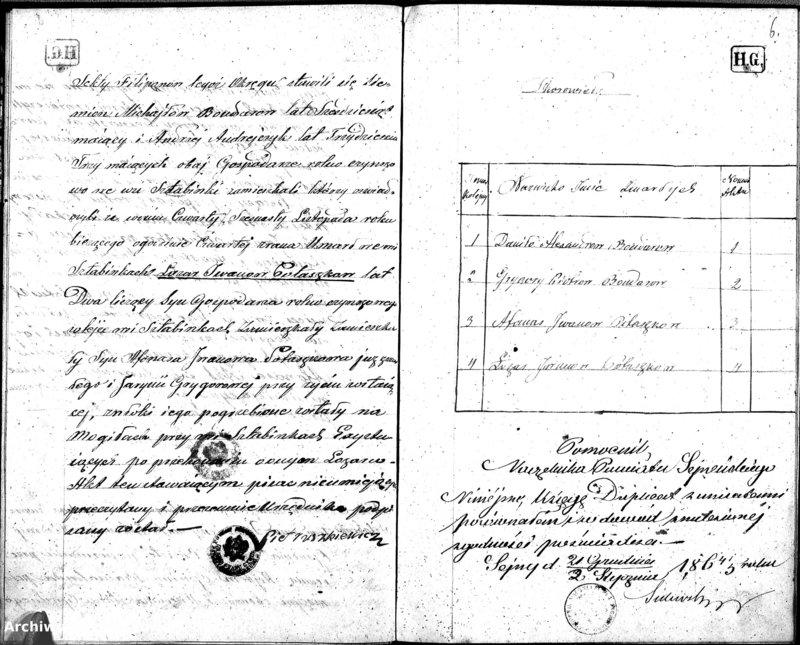 H.G.
Sekty Filiponow tegoż Okręgu stawili się Sie-
mion Michajłow Bondarow lat Sześdziesiąt
mający i Andrzej Andrejczyk lat Trzydzieści
Trzy mających obaj Gospodarze rolni czynszo-
wo we wsi Sztabinki zamieszkali którzy oświad-
czyli że w dniu Czwarty Listopada roku
bieżącego o godzinie Czwartej z rana Umarł we wsi
Sztabinkach Łazar Iwanow Połaszkow lat
Dwa liczący Syn Gospodarza rolno czynszowego
we wsi Sztabinkach Zamieszkały
Syn Afanasa Iwanowa Połaszkowa już
i Grygorewej przy życiu zostają-
cej, zwłoki jego pogrzebione zostały na
Mogiłach przy wsi Sztabinkach Exystu-
jących po przekonaniu o onym
Akt ten stawającym pisać nieumiejącym
przeczytany i przez nas Urzędnika podpi-
sany został. —
Pietraszkiewicz
6.
H.G.
Skorowidz
Numer Kolejny
Nazwisko Imię Zmarłych
Numer Aktu
1 Daniło Alexandrow Bondarow 1
2 Grygory Piotrow Bondarow 2
3 Afanas Iwanow Połaszkow 3
4 Łazar Iwanow Połaszkow 4
Pomocnik
Naczelnika Powiatu Sejneńskiego
Niniejszą Księgę Duplicat z unikatami
porównałem i na dowód zupełnej
zgodności poświadczam. —
Sejny d. 21 Grudnia / 2 Stycznia 1864/5 roku
Archiw